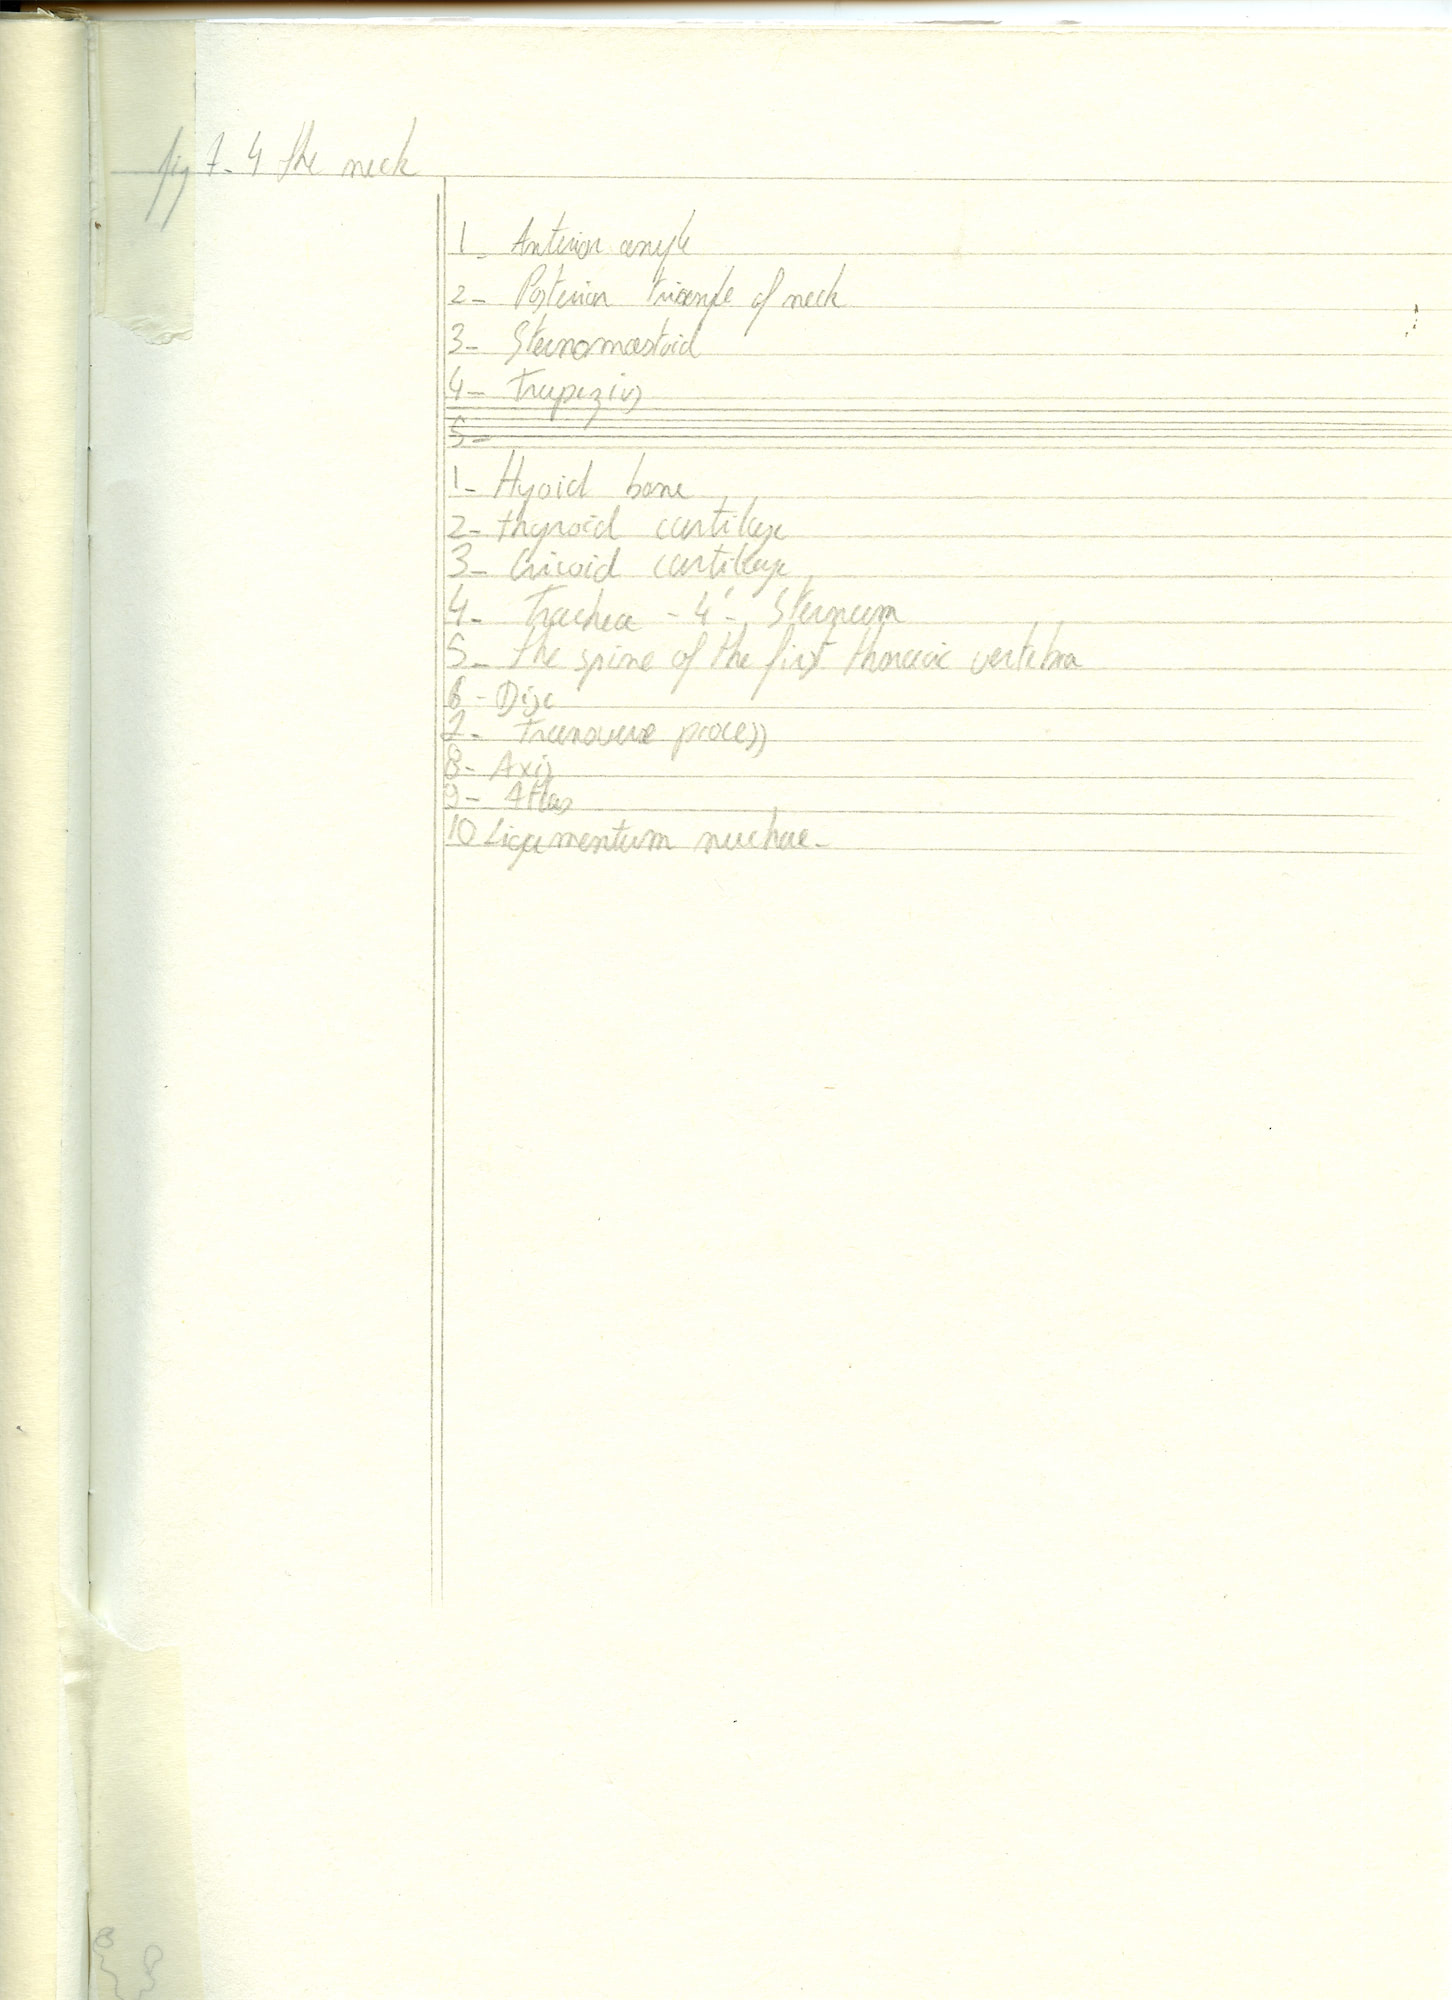 fig 7-4 the neck
1- Anterior angle
2- Posterior triangle of neck
3- Sternomastoid
4- Trapezius
5-
1- Hyoid bone
2- thyroid cartilage
3- Cricoid cartilage
4- Trachea - 4'- Sternum
5- the spine of the first thoracic vertebra
6- Disc
7- Transverse process
8- Axis
9- Atlas
10 Ligamentum nuchae-